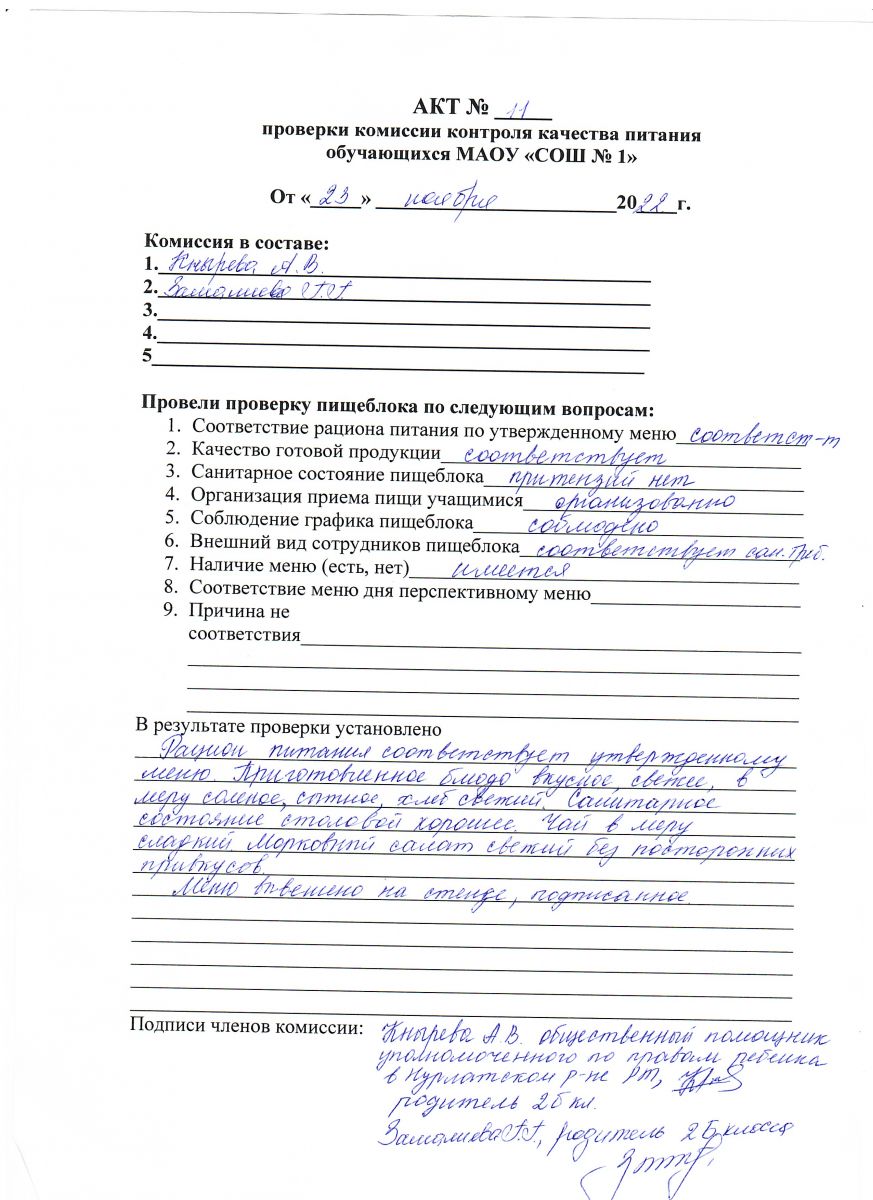 АКТ № 11
проверки комиссии контроля качества питания
обучающихся МАОУ «СОШ № 1»
От «23» ноября 2022 г.
Комиссия в составе:
1. Кнырева А.В.
2. Замалиева Г.Г.
3.
4.
5
Провели проверку пищеблока по следующим вопросам:
1. Соответствие рациона питания по утвержденному меню соответст-т
2. Качество готовой продукции соответствует
3. Санитарное состояние пищеблока притензий нет
4. Организация приема пищи учащимися организованно
5. Соблюдение графика пищеблока соблюдено
6. Внешний вид сотрудников пищеблока соответствует сан. треб.
7. Наличие меню (есть, нет) имеется
8. Соответствие меню дня перспективному меню
9. Причина не
соответствия
В результате проверки установлено
Рацион питания соответствует утвержденному
меню. Приготовленное блюдо вкусное, свежее, в
меру соленое, сытное, хлеб свежий. Санитарное
состояние столовой хорошее. Чай в меру
сладкий Морковный салат свежий без посторонних
привкусов.
Меню вывешено на стенде, подписанное.
Подписи членов комиссии:
Кнырева А.В. общественный помощник
уполномоченного по правам ребенка
в Нурлатском р-не РТ,
родитель 2б кл.
Замалиева Г.Г., родитель 2Б класса